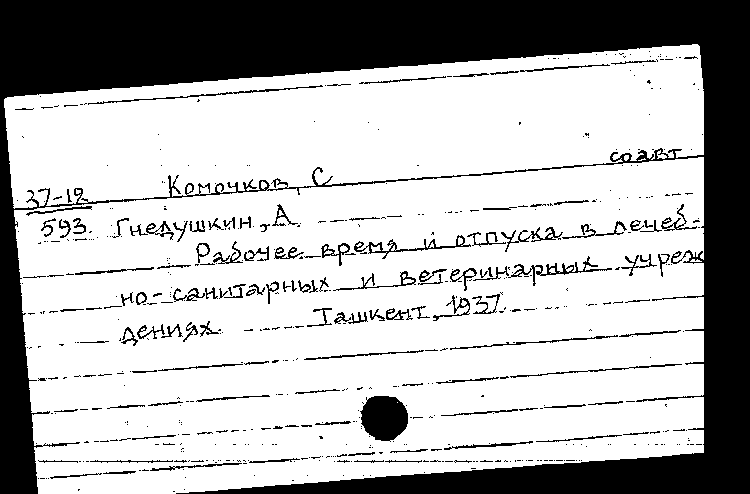 соавт
37-12 Комочков, С
593. Гнедушкин, А.
Рабочее время и отпуска в лечеб-
но-санитарных и ветеринарных учреж
дениях. Ташкент, 1937.